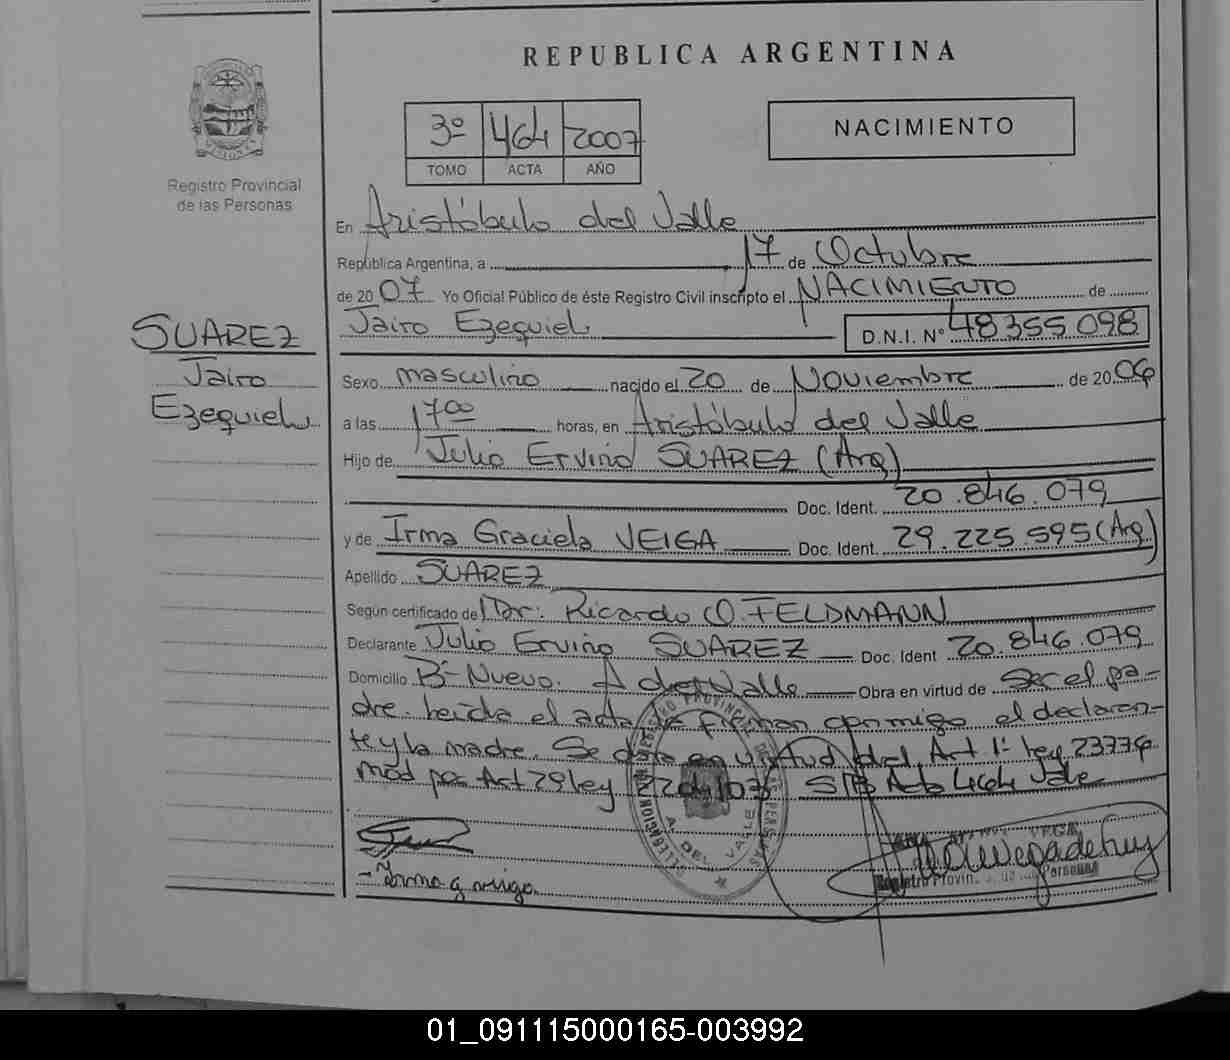 REPUBLICA ARGENTINA
3º 464 2007
TOMO ACTA AÑO
NACIMIENTO
Registro Provincial
de las Personas
En Aristóbulo del Valle
República Argentina, a 17 de Octubre
de 2007 Yo Oficial Público de éste Registro Civil inscripto el NACIMIENTO de
Jairo Ezequiel D.N.I. Nº 48355.098
SUAREZ
Jairo
Ezequiel
Sexo masculino nacido el 20 de Noviembre de 2006
a las 17ºº horas, en Aristóbulo del Valle
Hijo de Julio Ervino SUAREZ (Arg)
Doc. Ident. 20.846.079
y de Irma Graciela VEIGA Doc. Ident. 29.225.595 (Arg)
Apellido SUAREZ
Según certificado de Dr: Ricardo O. FELDMANN
Declarante Julio Ervino SUAREZ Doc. Ident 20.846.079
Domicilio Bº Nuevo. A del Valle Obra en virtud de ser el pa-
dre. Leída el acta la firman conmigo el declaran-
te y la madre. Se en virtud del Art 1º ley 23776
mod por Art 29 ley S/B Acta 464 Vale
REGISTRO PROVINCIAL DE LAS PERSONAS
A. DEL VALLE
VEGA
Registro Provin. Personas
01_091115000165-003992